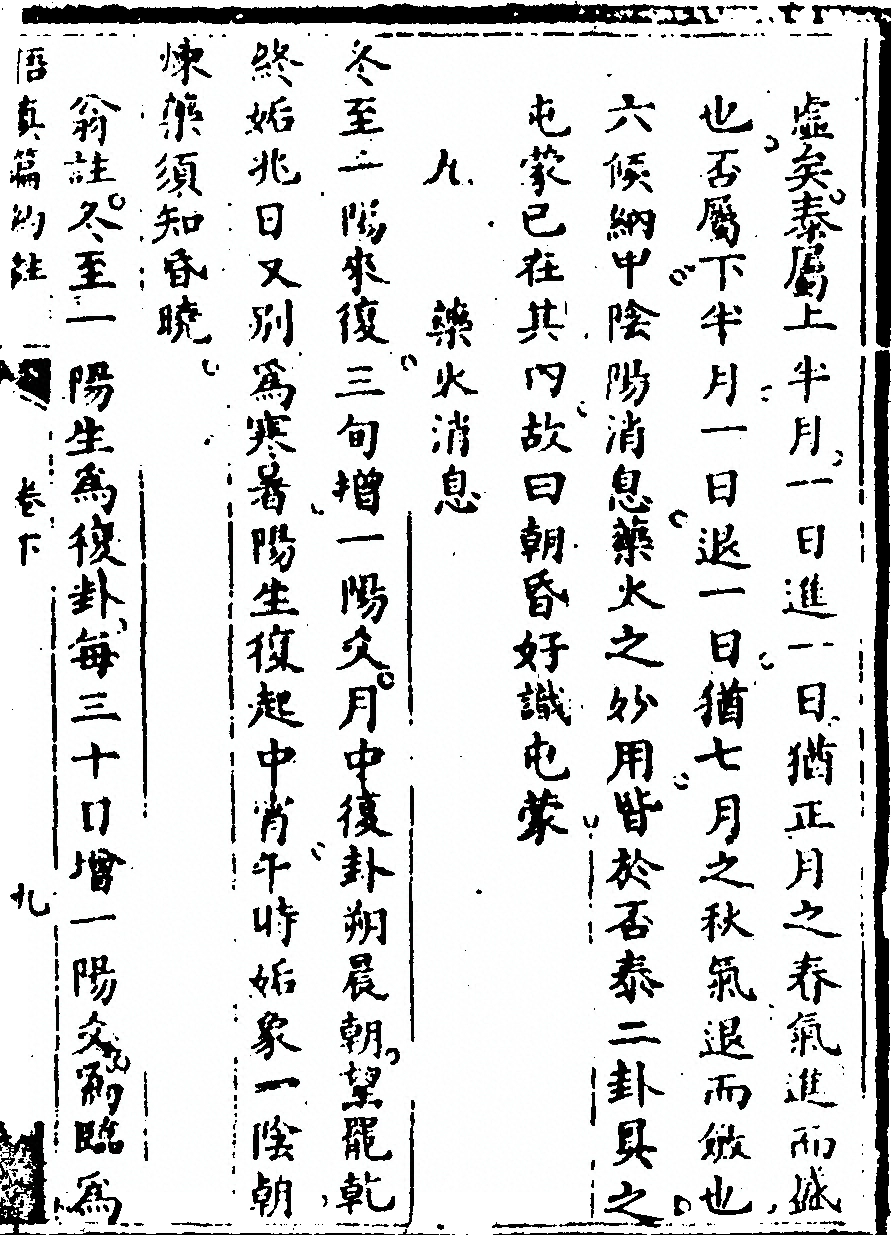 虛矣泰屬上半月一日進一日猶正月之春氣進而盛
也否屬下半月一日退一日猶七月之秋氣退而斂也
六候納甲陰陽消息藥火之妙用皆於否泰二卦具之
屯蒙已在其內故曰朝昏好識屯蒙
九　藥火消息
冬至一陽來復三旬增一陽爻月中復卦朔晨朝望罷乾
終姤兆日又別為寒暑陽生復起中宵午時姤象一陰朝
煉藥須知昏曉
翁註冬至一陽生為復卦每三十日增一陽爻則臨為
悟真篇約註　卷下　九